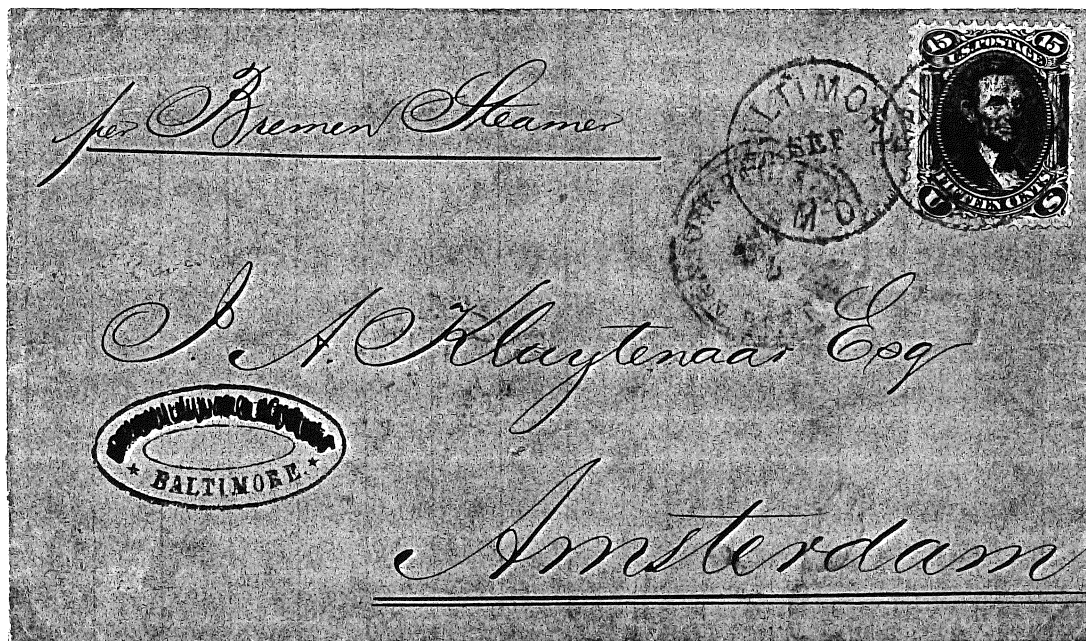 per Bremen Steamer
BALTIMORE
SEP
MD
NEW YORK
15 U.S. POSTAGE 15
FIFTEEN CENTS
U S
J. A. Kluytenaar Esq
★ BALTIMORE. ★
Amsterdam